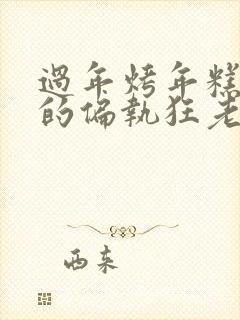 過年烤年糕
的偏執狂老
西来